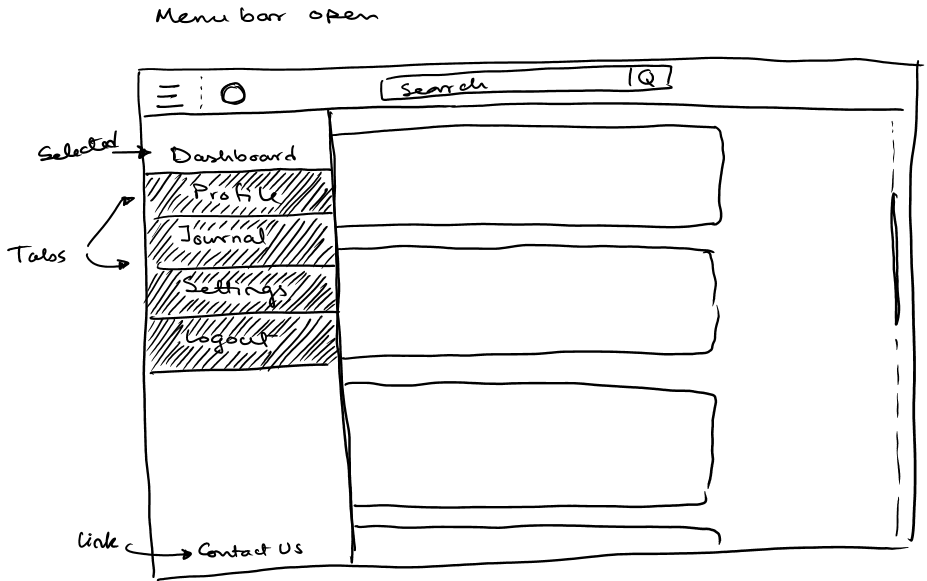 Menu bar open
Search
Selected
Dashboard
Profile
Tabs
Journal
Settings
Logout
Link
Contact Us